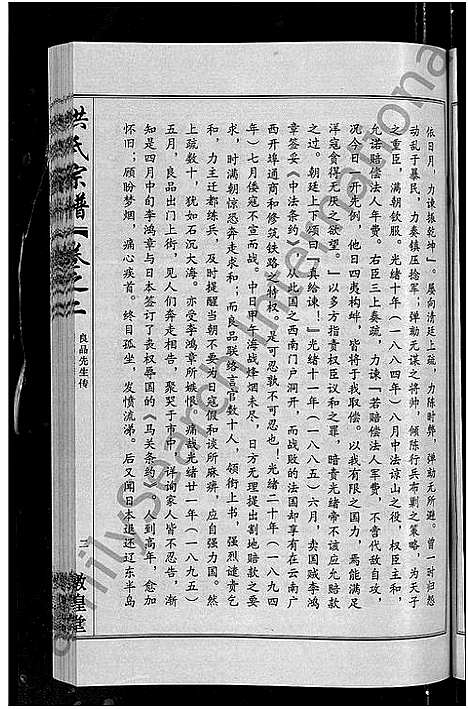 依日月，力谏振乾坤”。屡向清廷上疏，力陈时弊，弹劾无所避。曾一时归怨
动乱于暴民，力奏镇压捻军；弹劾无谋之将帅，倾陈行兵布剿之策略，为天子
之重臣，满朝钦服。光绪十年（一八八四年）八月中法谅山之役，权臣主和，
允诺赔偿法人年费。右臣三上奏疏，力谏“若赔偿法人军费，不啻代敌自攻，
况今日一开先例，他日四夷构衅，皆将于我取偿。以我有限之国力，焉能满足
洋寇贪得无厌之欲望。”以多方指责权臣议和之罪，暗责光绪帝不该应允赔款
之过。朝廷上下颂曰“真给谏！”光绪十一年（一八八五）六月，卖国贼李鸿
章签妥《中法条约》，从此国之西南门户洞开，而战败的法国却享有在云南广
西开埠通商和修筑铁路之特权。是可忍孰不可忍也！光绪二十年（一八九四
年）七月倭寇不宣而战。中日甲午海战烽烟未尽，日方无理提出割地赔款之要
求，时满朝惊恐奔走求和；而良品联络言官数十人，领衔上书，强烈谴责乞
和，力主迁都练兵，及时提醒当朝不要为日寇假和谈所麻痹，应自强力国。然
上疏数十，犹如石沉大海。亦受李鸿章所嫉恨。痛哉光绪廿一年（一八九五）
五月，良品出门上街，见人们奔走相告，聚哭于市中，详询家人皆不忍告，渐
知是四月中旬李鸿章与日本签订了丧权辱国的《马关条约》。人到高年，愈加
怀旧；顾盼梦烟，痛心疾首。终目孤坐，发愤流涕。后又闻日本退还辽东半岛
洪氏宗谱
卷之二
良品先生传
三
敦煌堂